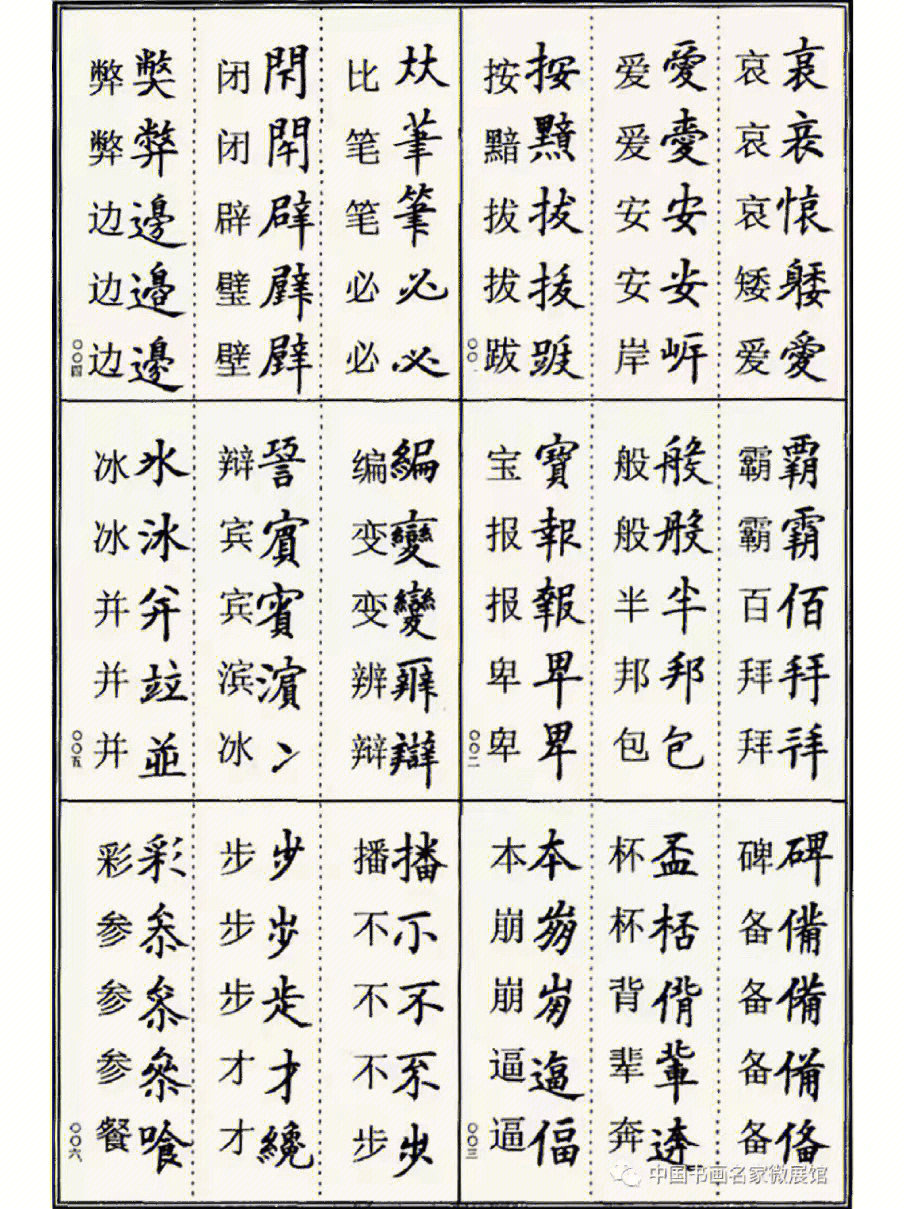 哀哀
哀哀哀矮爱
愛愛安安岍
爱爱安安岸
按黯拔拔
按黯拔拔跋
〇〇一
霸霸佰拜拜
霸霸百拜拜
般般半邦包
般般半邦包
寶報報卑卑
宝报报卑卑
〇〇二
碑備備備俻
碑备备备备
盃桮偝輩逩
杯杯背辈奔
本逼偪
本崩崩逼逼
〇〇三
筆筆必必
比笔笔必必
閇閉辟
闭闭辟璧壁
弊邊邊邊
弊弊边边边
〇〇四
編變變辨辯
编变变辨辩
賓賓濵冫
辩宾宾滨冰
氷冰并竝並
冰冰并并并
〇〇五
播不不
播不不不步
步步才纔
步步步才才
彩参参叅喰
彩参参参餐
〇〇六
中国书画名家微展馆